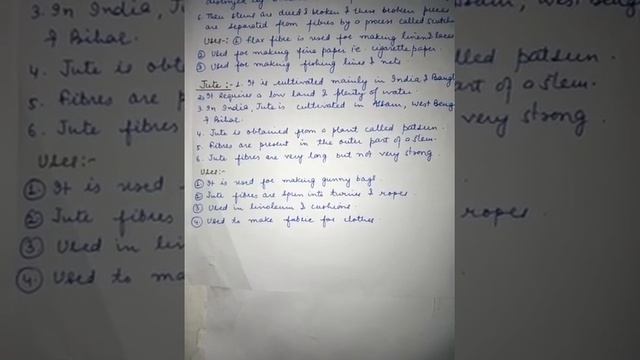 6. Then stems are dried & broken & these broken pieces
are separated from fibres by a process called
Uses:- ① Flax fibre is used for making linen & laces
② Used for making fine paper ie. cigarette paper.
③ Used for making fishing lines & nets.
Jute :- 1. It is cultivated mainly in India &
2. It requires a low land & plenty of water.
3. In India, Jute is cultivated in Assam, West
& Bihar.
4. Jute is obtained from a plant called patsun.
5. Fibres are present in the outer part of a stem.
6. Jute fibres are very long but not very strong.
Uses:-
① It is used for making gunny bags.
② Jute fibres are spun into & ropes.
③ Used in linoleum & cushions.
④ Used to make fabric for clothes.